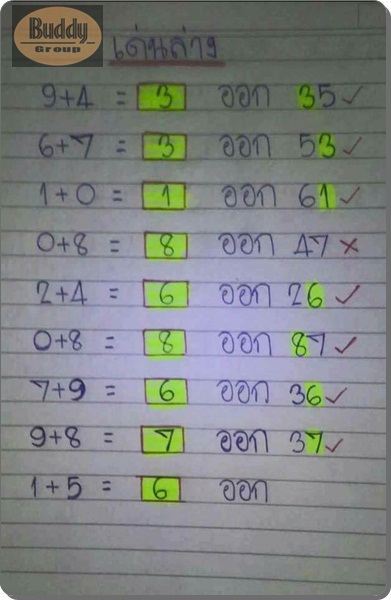 Buddy
Group
เด่นล่าง
9+4 = 3 ออก 35 ✓
6+7 = 3 ออก 53 ✓
1+0 = 1 ออก 61 ✓
0+8 = 8 ออก 47 ×
2+4 = 6 ออก 26 ✓
0+8 = 8 ออก 87 ✓
7+9 = 6 ออก 36 ✓
9+8 = 7 ออก 37 ✓
1+5 = 6 ออก